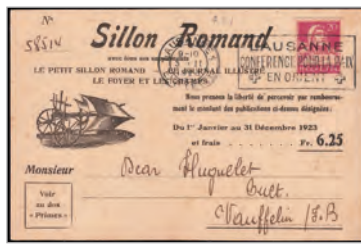 Nº
58514
Sillon Romand
avec
LE PETIT SILLON ROMAND LE JOURNAL ILLUSTRÉ
LE FOYER ET LES CHAMPS
LAUSANNE
CONFÉRENCE POUR LA PAIX
EN ORIENT
Nous prenons la liberté de percevoir par rembourse-
ment le montant des publications ci-dessus désignées:
Du 1er Janvier au 31 Décembre 1923
et frais Fr. 6.25
Monsieur
Oscar Huguelet
Cult.
Vauffelin J. B
Voir
au dos
« Primes »